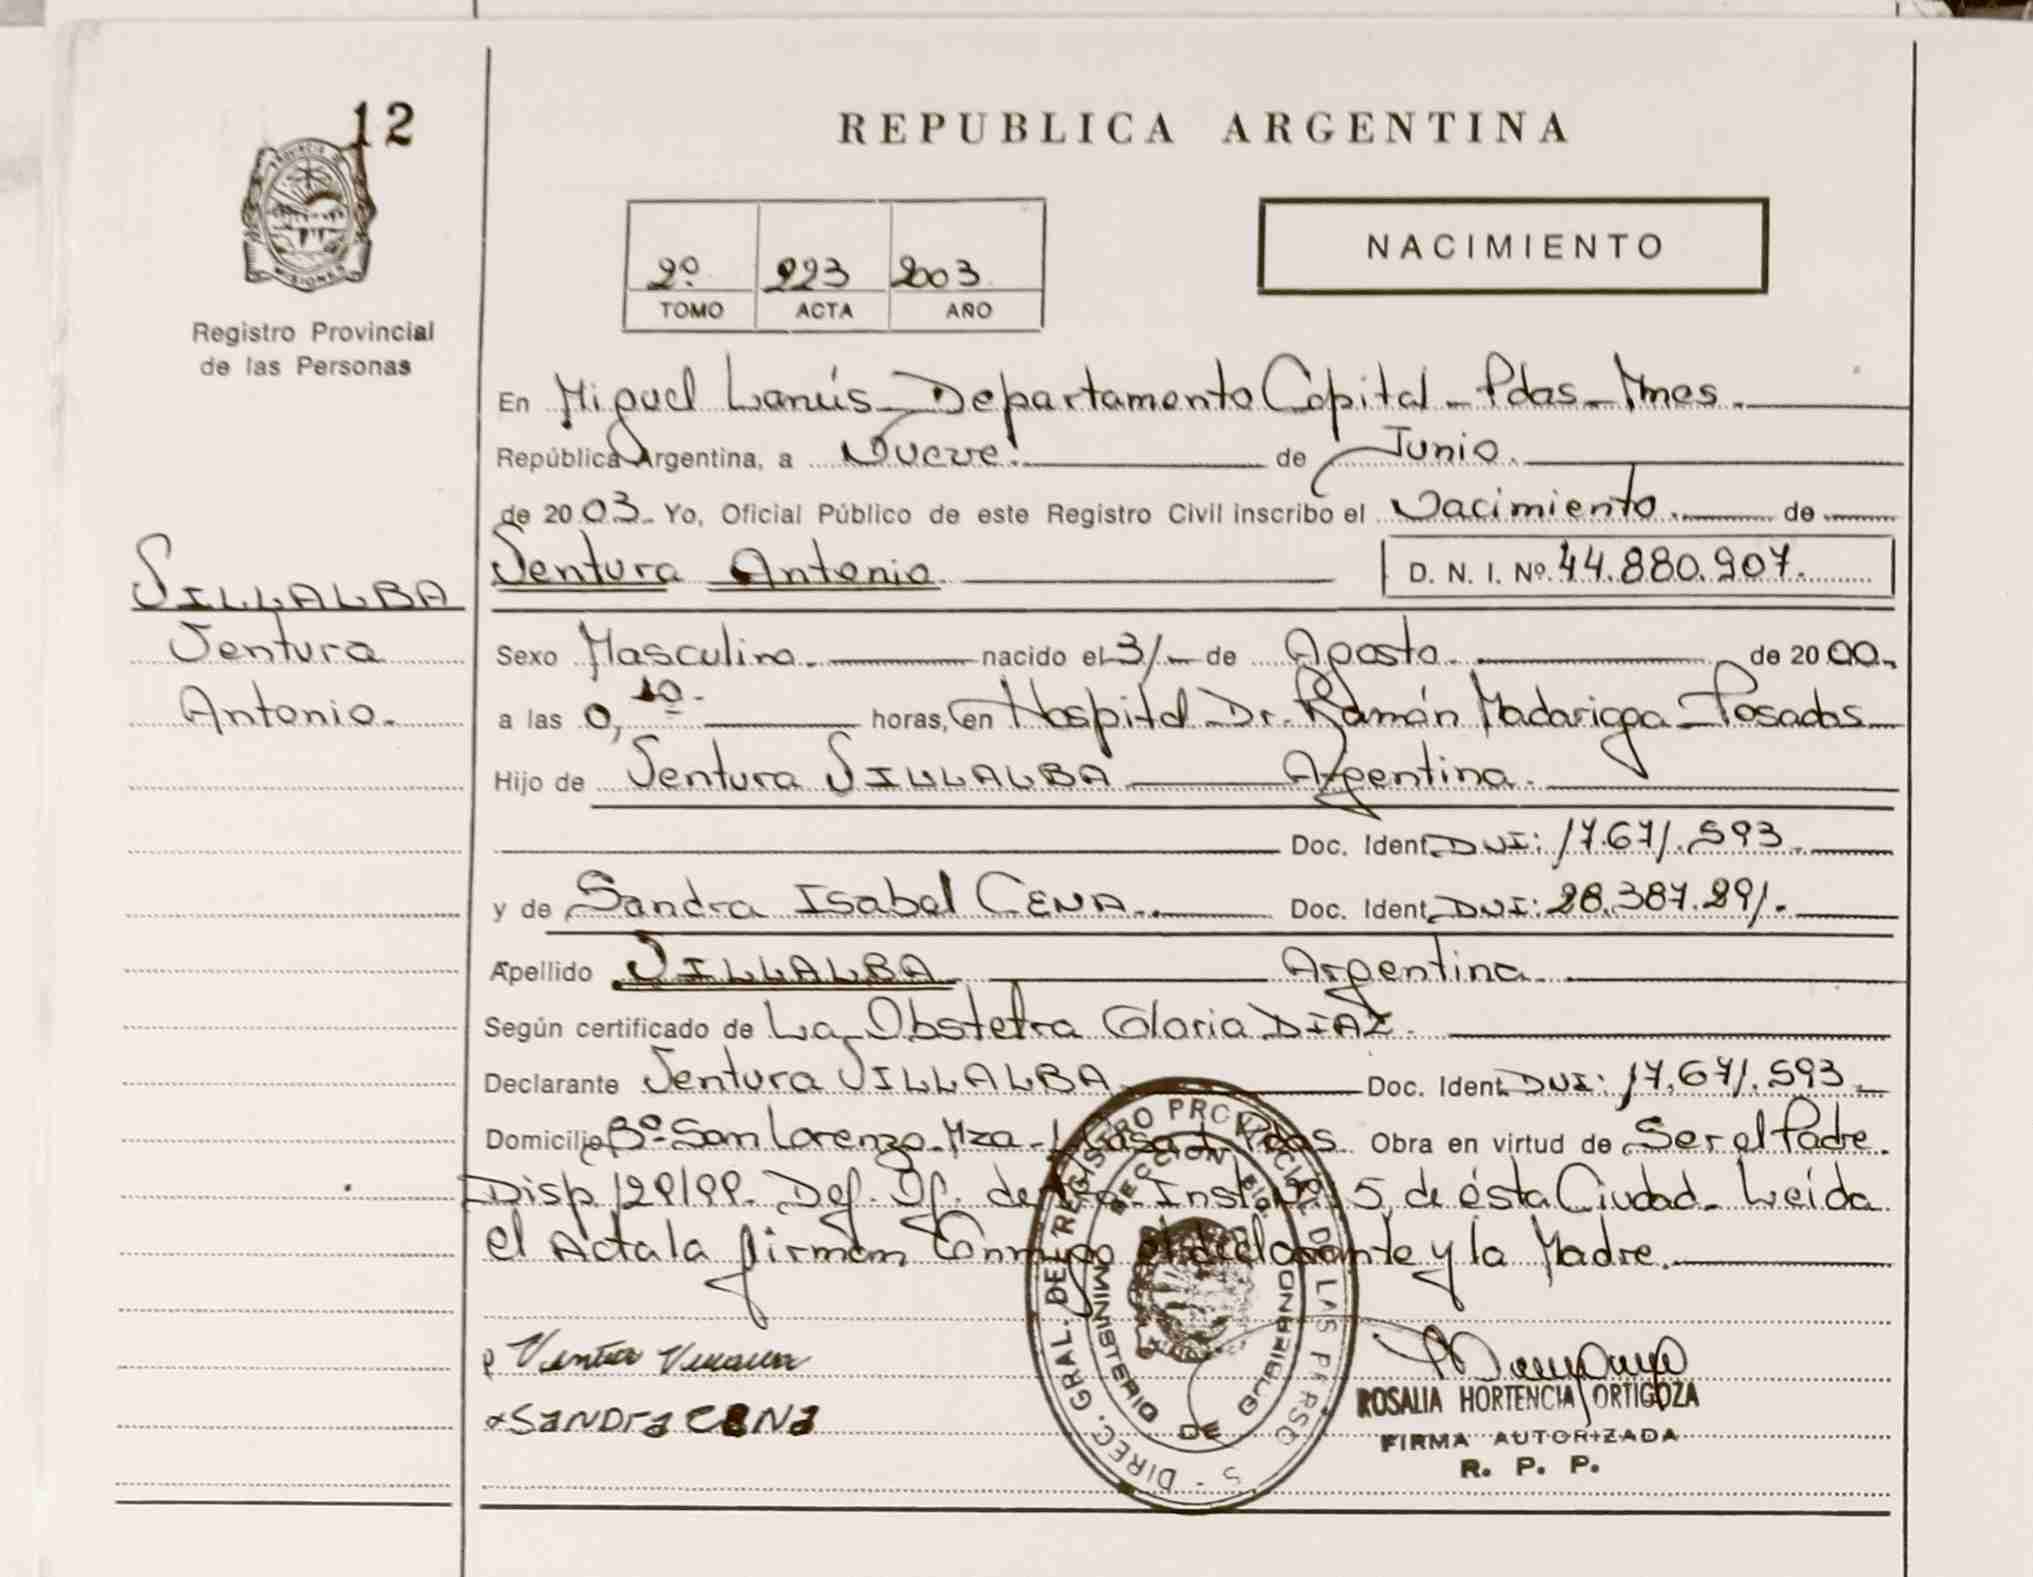 12
REPUBLICA ARGENTINA
PROVINCIA DE MISIONES
Registro Provincial
de las Personas
2º 223 2003
TOMO ACTA AÑO
NACIMIENTO
En Miguel Lanús - Departamento Capital - Pdas - Mnes.
República Argentina, a Nueve. de Junio.
de 2003. Yo, Oficial Público de este Registro Civil inscribo el Nacimiento. de
Ventura Antonio D. N. I. Nº. 44.880.907.
VILLALBA
Ventura
Antonio.
Sexo Masculino. nacido el 31 de Agosto. de 2000.
a las 0,10 horas, en Hospital Dr. Ramón Madariaga - Posadas
Hijo de Ventura VILLALBA Argentina.
Doc. Ident. DNI: 17.671.593.
y de Sandra Isabel CENA. Doc. Ident. DNI: 28.387.291.
Apellido VILLALBA Argentina
Según certificado de La Obstetra Gloria DIAZ.
Declarante Ventura VILLALBA Doc. Ident. DNI: 17.671.593.
Domicilio Bº San Lorenzo - Mza - Casa Pdas. Obra en virtud de Ser el Padre.
Disp 129/99. Def. Of. de Inst. Nº 5, de ésta Ciudad. Leída
el Acta la firman Conmigo el declarante y la Madre.
SANDrA CENA
ROSALIA HORTENCIA ORTIGOZA
FIRMA AUTORIZADA
R. P. P.
DIREC. GRAL. DEL REGISTRO PROVINCIAL DE LAS PERSONAS
MINISTERIO DE GOBIERNO